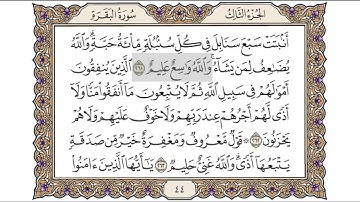 الجزء الثالث
سورة البقرة
أَنۢبَتَتْ سَبْعَ سَنَابِلَ فِي كُلِّ سُنۢبُلَةٍ مِّا۟ئَةُ حَبَّةٍ ۗ وَٱللَّهُ
يُضَٰعِفُ لِمَن يَشَآءُ ۗ وَٱللَّهُ وَٰسِعٌ عَلِيمٌ ٢٦١ ٱلَّذِينَ يُنفِقُونَ
أَمْوَٰلَهُمْ فِي سَبِيلِ ٱللَّهِ ثُمَّ لَا يُتْبِعُونَ مَآ أَنفَقُوا۟ مَنًّا وَلَآ
أَذًى لَّهُمْ أَجْرُهُمْ عِندَ رَبِّهِمْ وَلَا خَوْفٌ عَلَيْهِمْ وَلَا هُمْ
يَحْزَنُونَ ٢٦٢ ۞ قَوْلٌ مَّعْرُوفٌ وَمَغْفِرَةٌ خَيْرٌ مِّن صَدَقَةٍ
يَتْبَعُهَآ أَذًى ۗ وَٱللَّهُ غَنِيٌّ حَلِيمٌ ٢٦٣ يَٰٓأَيُّهَا ٱلَّذِينَ ءَامَنُوا۟
٤٤